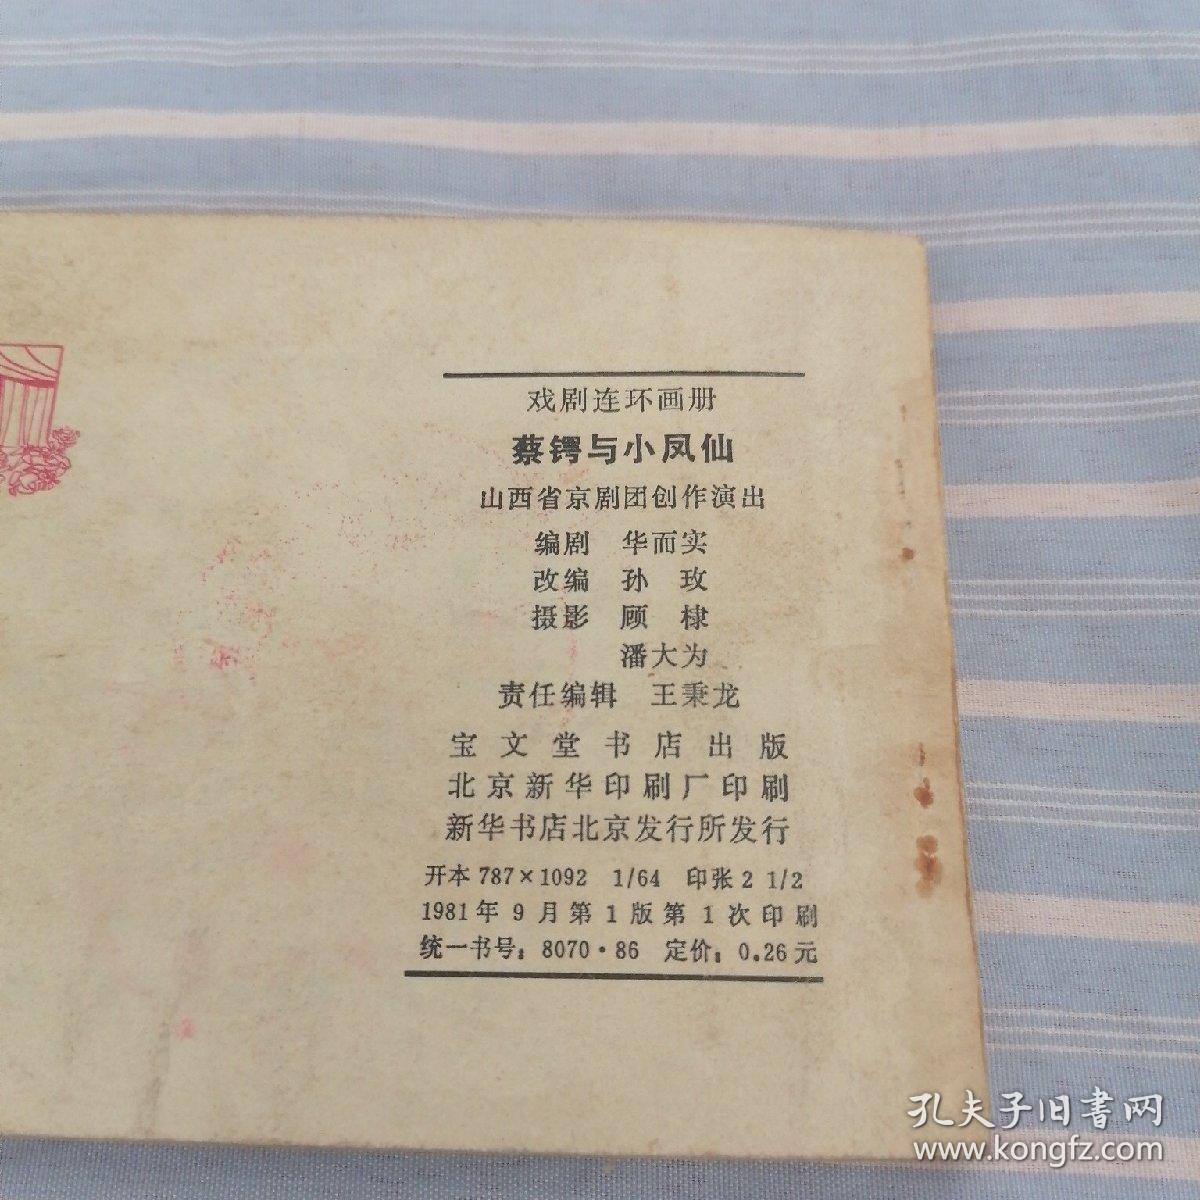 戏剧连环画册
蔡锷与小凤仙
山西省京剧团创作演出
编� 华而实
改编 孙 玫
摄影 顾 棣
潘大为
责任编辑 王秉龙
宝文堂书店出版
北京新华印刷厂印刷
新华书店北京发行所发行
开本 787×1092 1/64 印张 2 1/2
1981年9月第1版第1次印刷
统一书号：8070·86 定价：0.26元
孔夫子旧书网
www.kongfz.com